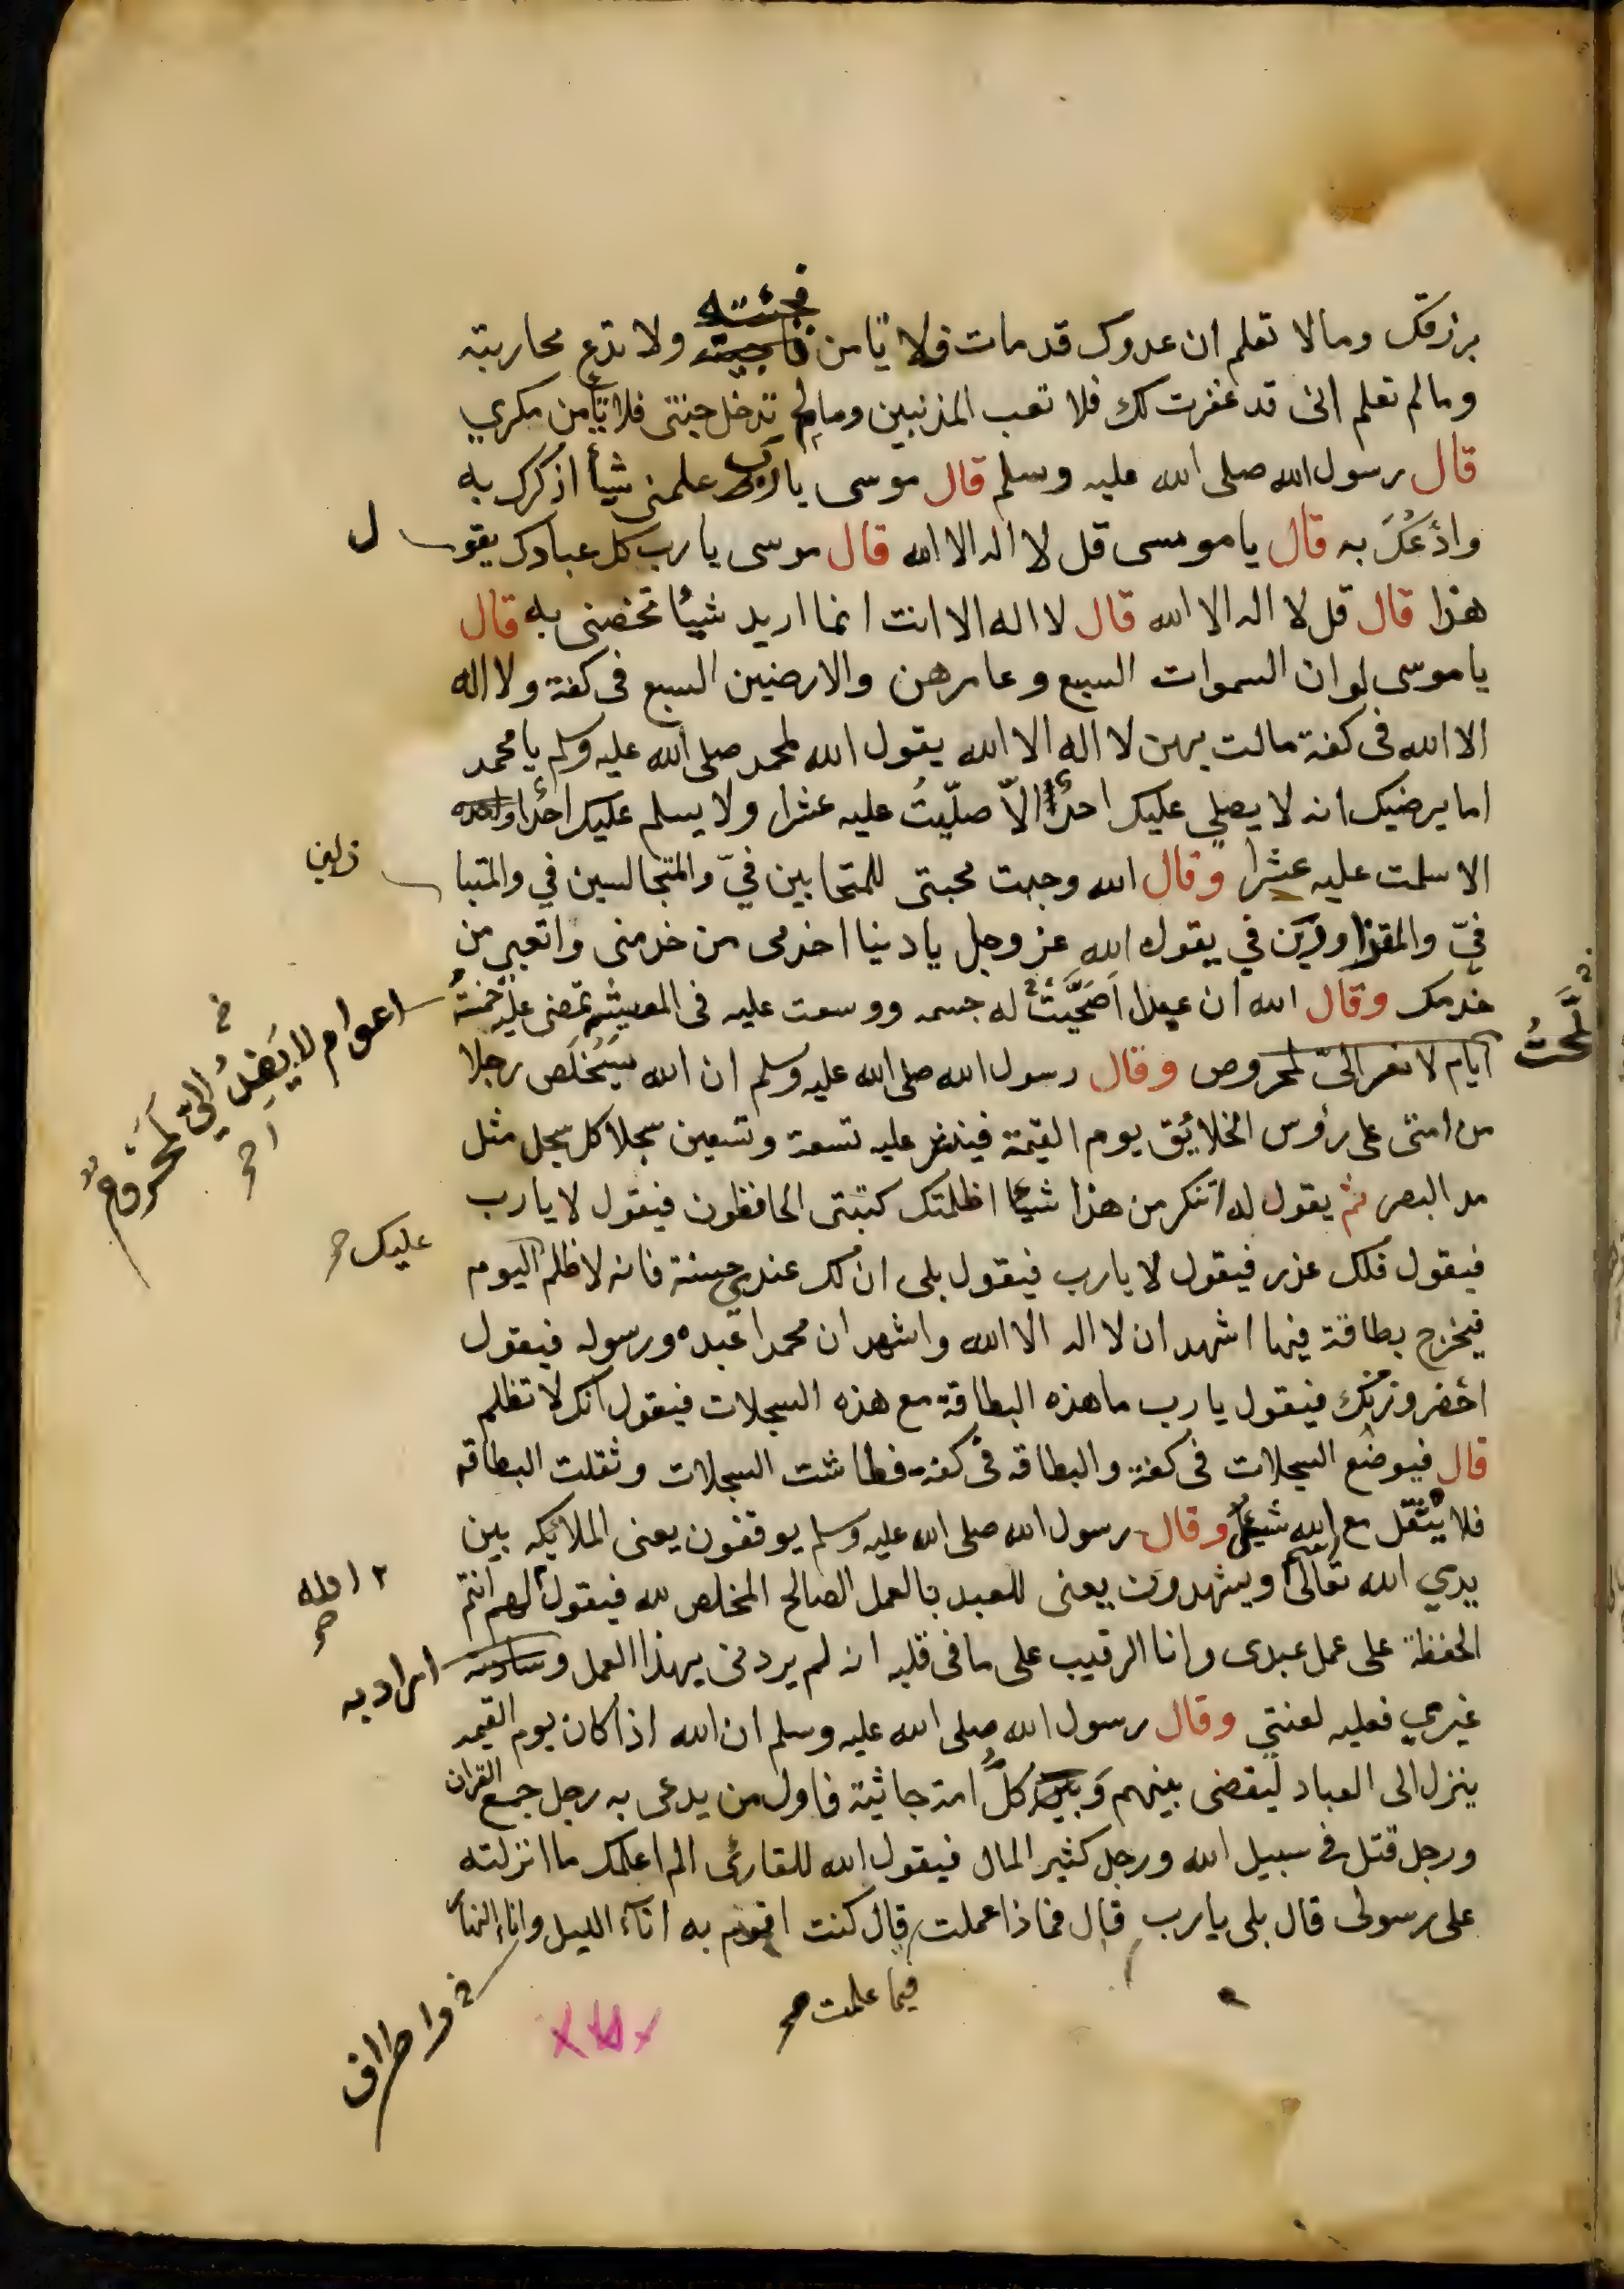 فجئته
برزقك ومالا تعلم ان عدوك قد مات فلا تأمن ولا تدع محاربته
ومالم تعلم انى قد غفرت لك فلا تعب المذنبين ومالم تدخل جنتى فلا تأمن مكري
قال رسول الله صلى الله عليه وسلم قال موسى يارب علمنى شيأ اذكرك به
وادْعُكَ به قال يا موسى قل لا اله الا الله قال موسى يا رب كل عبادك يقو ل
هذا قال قل لا اله الا الله قال لا اله الا انت انما اريد شيئا تخصنى به قال
يا موسى لو ان السموات السبع وعامرهن والارضين السبع فى كفة ولا اله
الا الله فى كفة مالت بهن لا اله الا الله يقول الله لمحمد صلى الله عليه وسلم يا محمد
اما يرضيك انه لا يصلي عليك احد الاّ صلّيتُ عليه عشرا ولا يسلم عليك احد
الا سلمت عليه عشرا وقال الله وجبت محبتى للمتحابين فيّ والمتجالسين في والمتبا ذلين
فيّ والمتزاورين في يقول الله عز وجل يا دنيا اخدمى من خدمنى واتعبي من
خدمك وقال الله ان عبدا اصَحَّيتُ له جسمه ووسعت عليه فى المعيشة تمضى عليه خمسةُ
صحَّحتُ
اعوام لا يَفِدُ اليّ لمَحْرُومٌ
ايام لا يفد اليّ لمحروم وقال رسول الله صلى الله عليه وسلم ان الله سَيُخلّص رجلا
من امتى على رؤس الخلائق يوم القيمة فينشر عليه تسعة وتسعين سجلا كل سجل مثل
مد البصر ثم يقول له اتنكر من هذا شيئا اظلمتك كتبتى الحافظون فيقول لا يا رب
فيقول فلك عذر فيقول لا يا رب فيقول بلى ان لك عندي حسنة فانه لا ظلم اليوم
عليك
فيخرج بطاقة فيها اشهد ان لا اله الا الله واشهد ان محمدا عبده ورسوله فيقول
احضر وزنك فيقول يا رب ما هذه البطاقة مع هذه السجلات فيقول انك لا تظلم
قال فيوضع السجلات فى كفة والبطاقه فى كفة فطاشت السجلات وثقلت البطاقه
فلا يثقل مع الله شيئ وقال رسول الله صلى الله عليه وسلم يوقفون يعنى الملائكه بين
يدي الله تعالى ويشهدون يعنى للعبد بالعمل الصالح المخلص لله فيقول لهم انتم
الله
الحفظة على عمل عبدى وانا الرقيب على ما فى قلبه انه لم يردنى بهذا العمل و
اراد به
غيري فعليه لعنتي وقال رسول الله صلى الله عليه وسلم ان الله اذا كان يوم القيمه
ينزل الى العباد ليقضى بينهم وَكلُّ امة جاثية فاول من يدعى به رجل جمع القران
ورجل قتل فى سبيل الله ورجل كثير المال فيقول الله للقارئ الم اعلمك ما انزلته
على رسولى قال بلى يا رب قال فماذا عملت قال كنت اقوم به اناء الليل واناء النهار
فيما علمت
واطراف